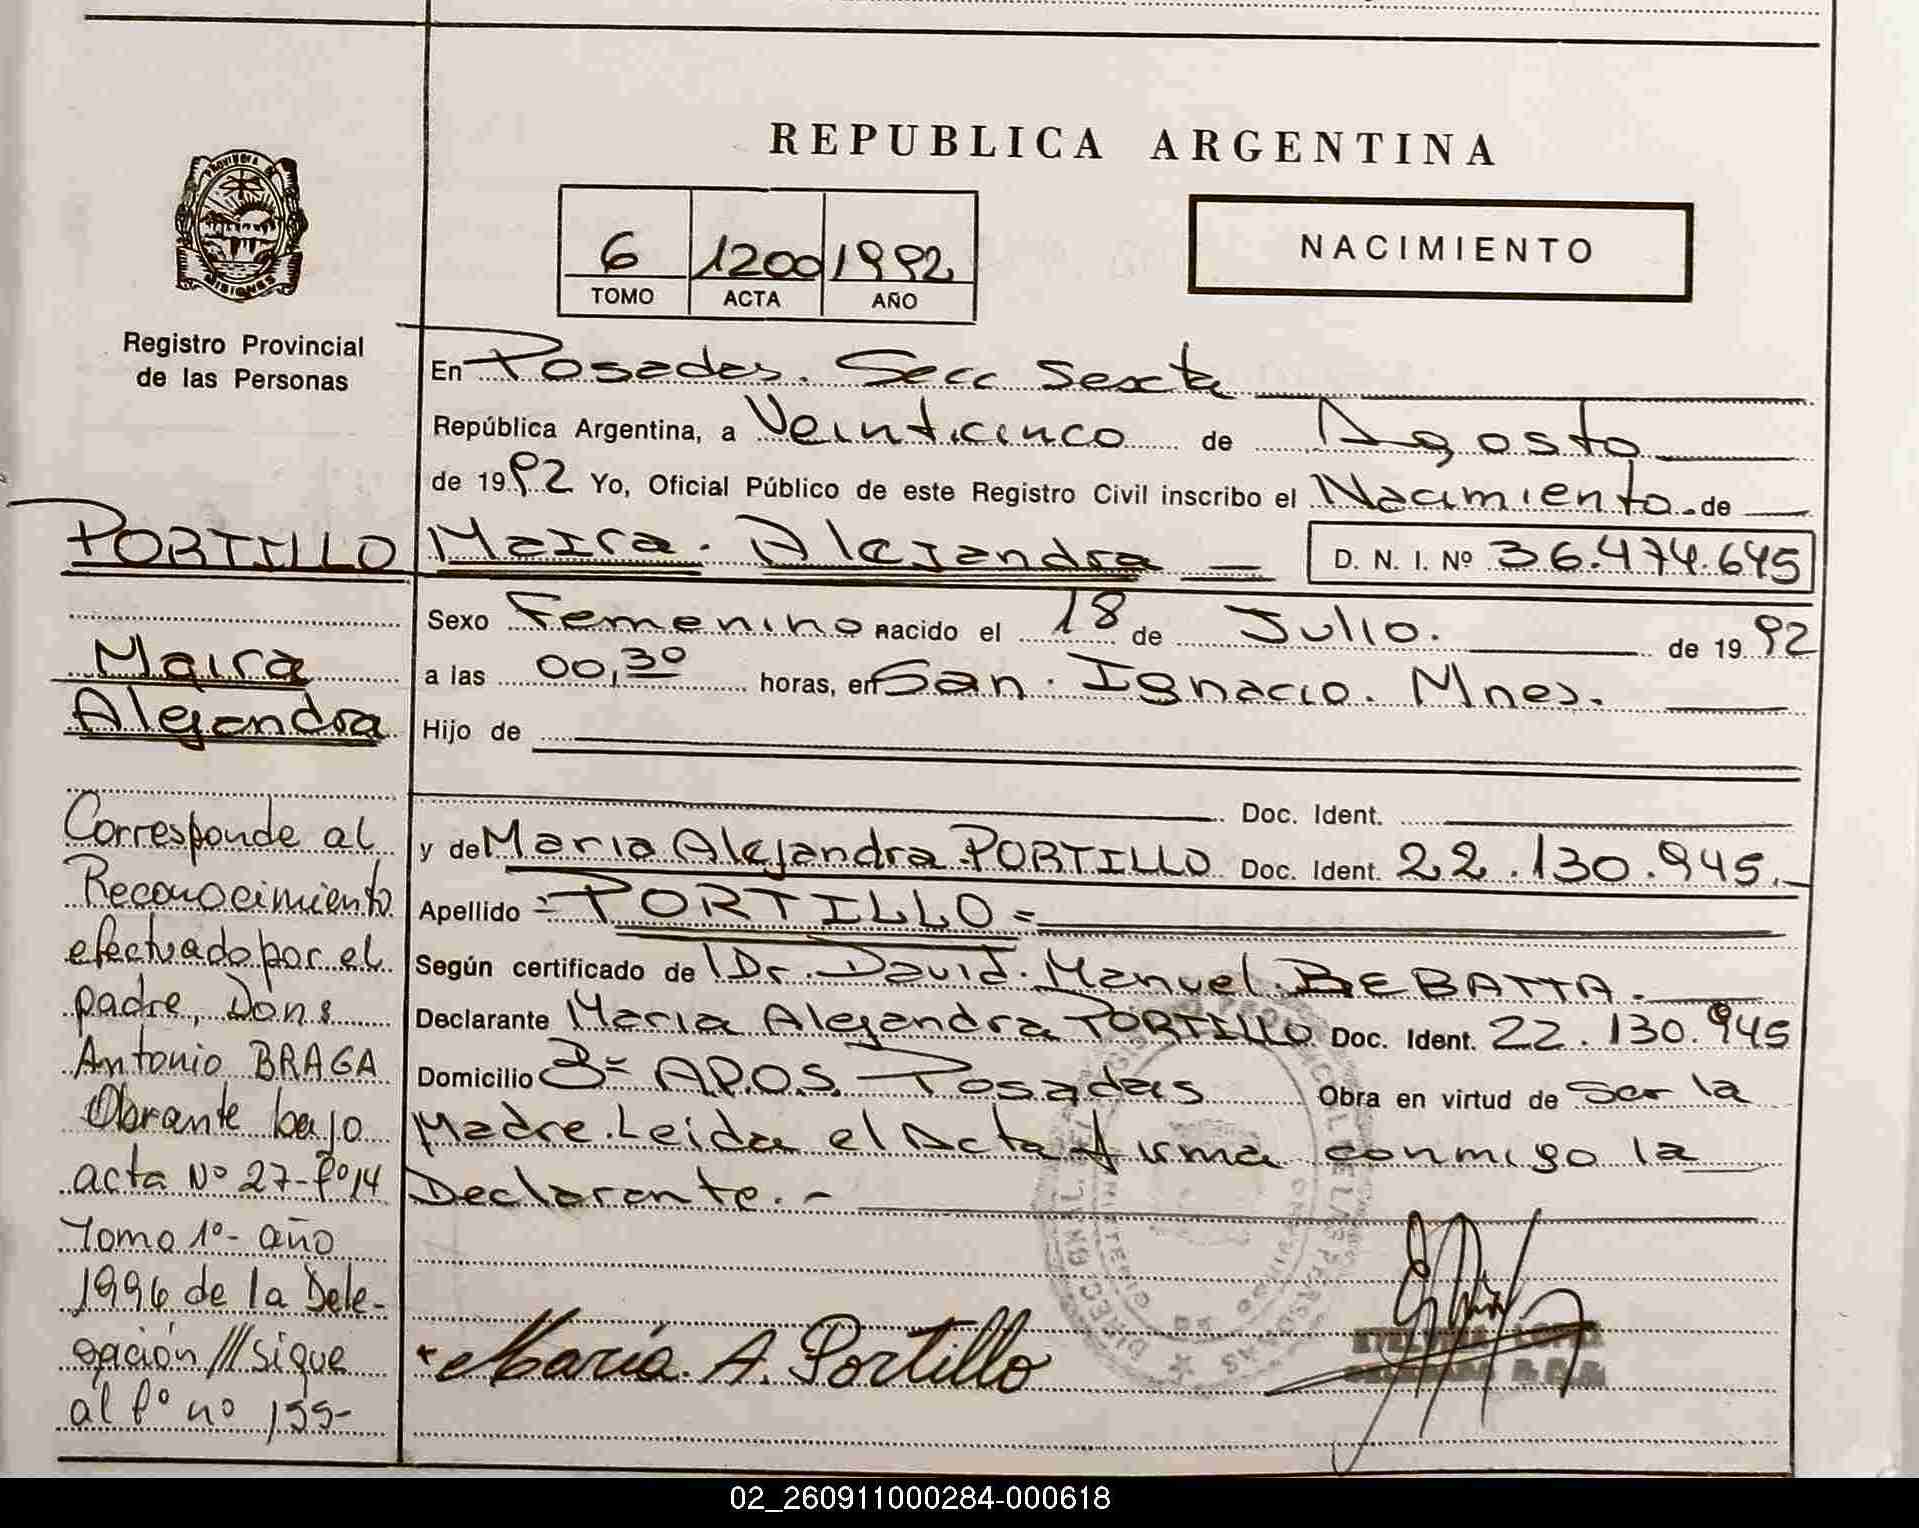 REPUBLICA ARGENTINA
PROVINCIA DE
MISIONES
Registro Provincial
de las Personas
6 1200 1992
TOMO ACTA AÑO
NACIMIENTO
En Posadas. Secc Sexta
República Argentina, a Veinticinco de Agosto
de 1992 Yo, Oficial Público de este Registro Civil inscribo el Nacimiento de
Maira Alejandra D. N. I. Nº 36.474.645
Sexo Femenino nacido el 18 de Julio. de 1992
a las 00,30 horas, en San Ignacio. Mnes.
Hijo de
Doc. Ident.
y de Maria Alejandra PORTILLO Doc. Ident. 22.130.945.
Apellido = PORTILLO =
Según certificado de Dr. David Manuel BEBATTA.
Declarante Maria Alejandra PORTILLO Doc. Ident. 22.130.945
Domicilio 3º A.P.O.S. Posadas Obra en virtud de ser la
Madre. Leida el Acta firma conmigo la
Declarante.-
María A. Portillo
PORTILLO
Maira
Alejandra
Corresponde al
Reconocimiento
efectuado por el
padre, Don
Antonio BRAGA
Obrante bajo
acta Nº 27-fº14
Tomo 1º- año
1996 de la Dele-
gación /// sigue
al fº nº 155-
02_260911000284-000618